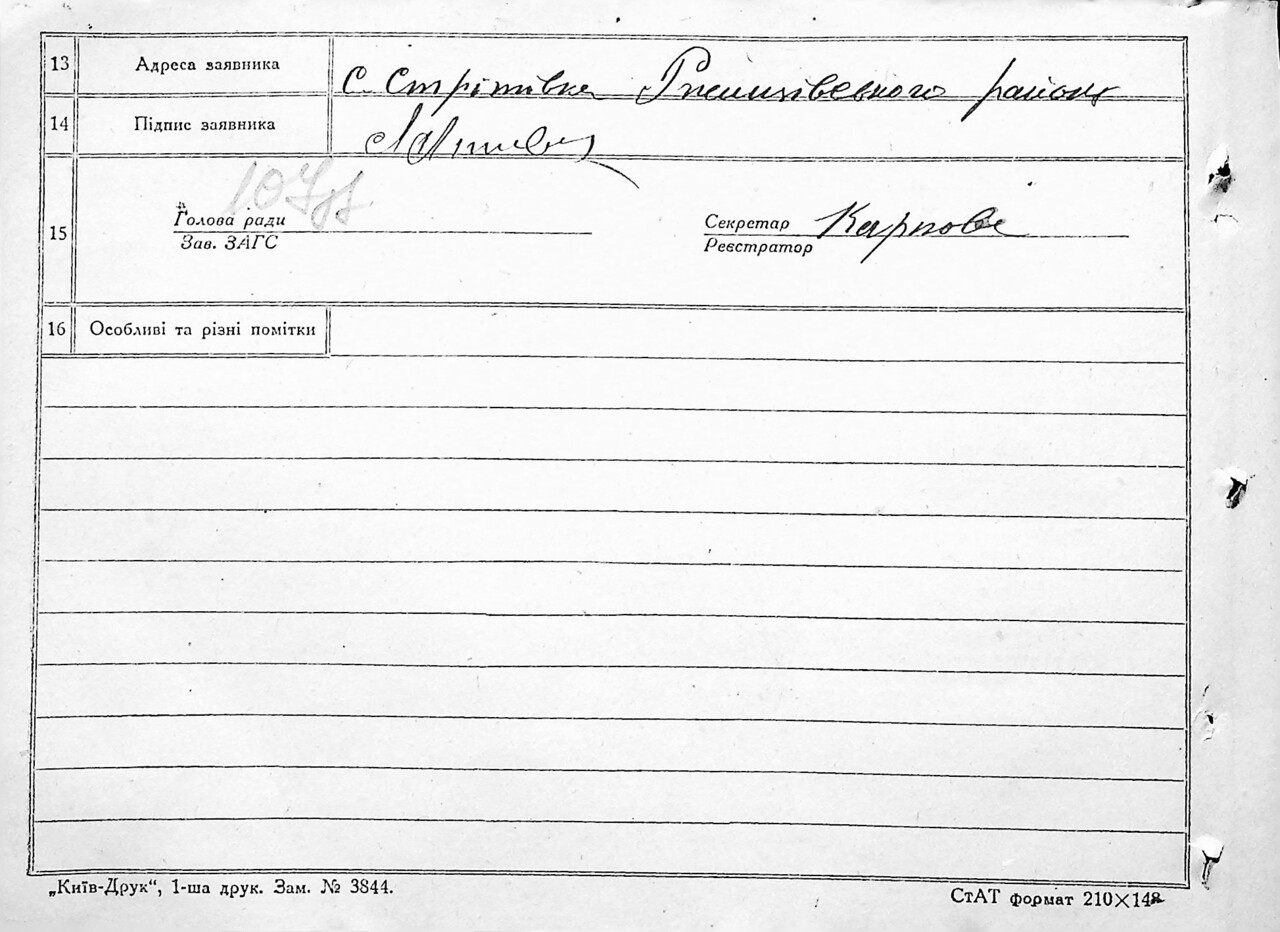 13 Адреса заявника с. Стрітівка Ржищівського району
14 Підпис заявника
15 Голова ради Секретар
Зав. ЗАГС Реєстратор
16 Особливі та різні помітки
„Київ-Друк“, 1-ша друк. Зам. № 3844.
СтАТ формат 210×148